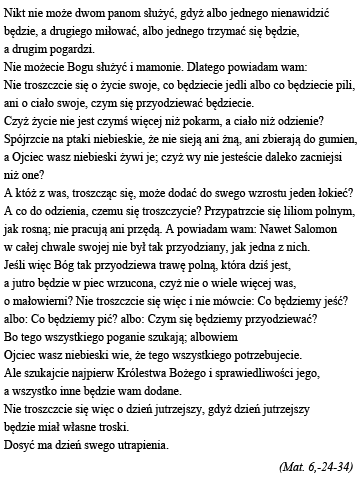 Nikt nie może dwom panom służyć, gdyż albo jednego nienawidzić
będzie, a drugiego miłować, albo jednego trzymać się będzie,
a drugim pogardzi.
Nie możecie Bogu służyć i mamonie. Dlatego powiadam wam:
Nie troszczcie się o życie swoje, co będziecie jedli albo co będziecie pili,
ani o ciało swoje, czym się przyodziewać będziecie.
Czyż życie nie jest czymś więcej niż pokarm, a ciało niż odzienie?
Spójrzcie na ptaki niebieskie, że nie sieją ani żną, ani zbierają do gumien,
a Ojciec wasz niebieski żywi je; czyż wy nie jesteście daleko zacniejsi
niż one?
A któż z was, troszcząc się, może dodać do swego wzrostu jeden łokieć?
A co do odzienia, czemu się troszczycie? Przypatrzcie się liliom polnym,
jak rosną; nie pracują ani przędą. A powiadam wam: Nawet Salomon
w całej chwale swojej nie był tak przyodziany, jak jedna z nich.
Jeśli więc Bóg tak przyodziewa trawę polną, która dziś jest,
a jutro będzie w piec wrzucona, czyż nie o wiele więcej was,
o małowierni? Nie troszczcie się więc i nie mówcie: Co będziemy jeść?
albo: Co będziemy pić? albo: Czym się będziemy przyodziewać?
Bo tego wszystkiego poganie szukają; albowiem
Ojciec wasz niebieski wie, że tego wszystkiego potrzebujecie.
Ale szukajcie najpierw Królestwa Bożego i sprawiedliwości jego,
a wszystko inne będzie wam dodane.
Nie troszczcie się więc o dzień jutrzejszy, gdyż dzień jutrzejszy
będzie miał własne troski.
Dosyć ma dzień swego utrapienia.
(Mat. 6,-24-34)